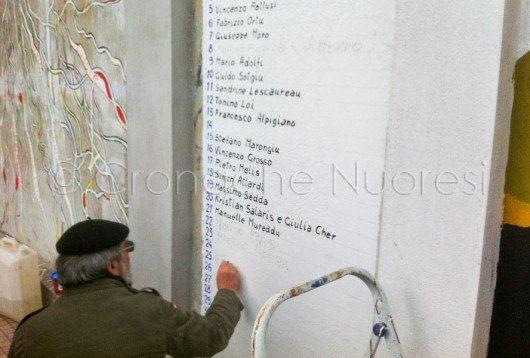 5 Vincenzo Pattusi
6 Fabrizio Ortu
7 Giuseppe Moro
8
9 Mario Adolfi
10 Guido Sotgiu
11 Sandrine Lescaureau
12 Tonino Loi
13 Francesco Alpigiano
14
15 Stefano Marongiu
16 Vincenzo Grosso
17 Pietro Melis
18 Simon Atlardi
19 Massimo Sedda
20 Kristian Salaris e Giulia Cher
21 Manuelle Mureddu
22
23
24
25
26
27
28
29
© Cronache Nuoresi